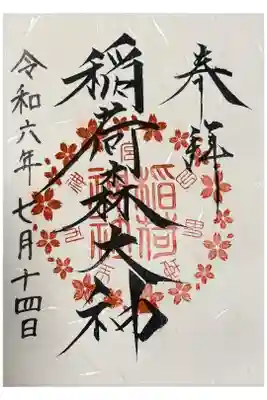 奉拝
稲荷森大神
稲荷
神社
令和六年 七月十四日